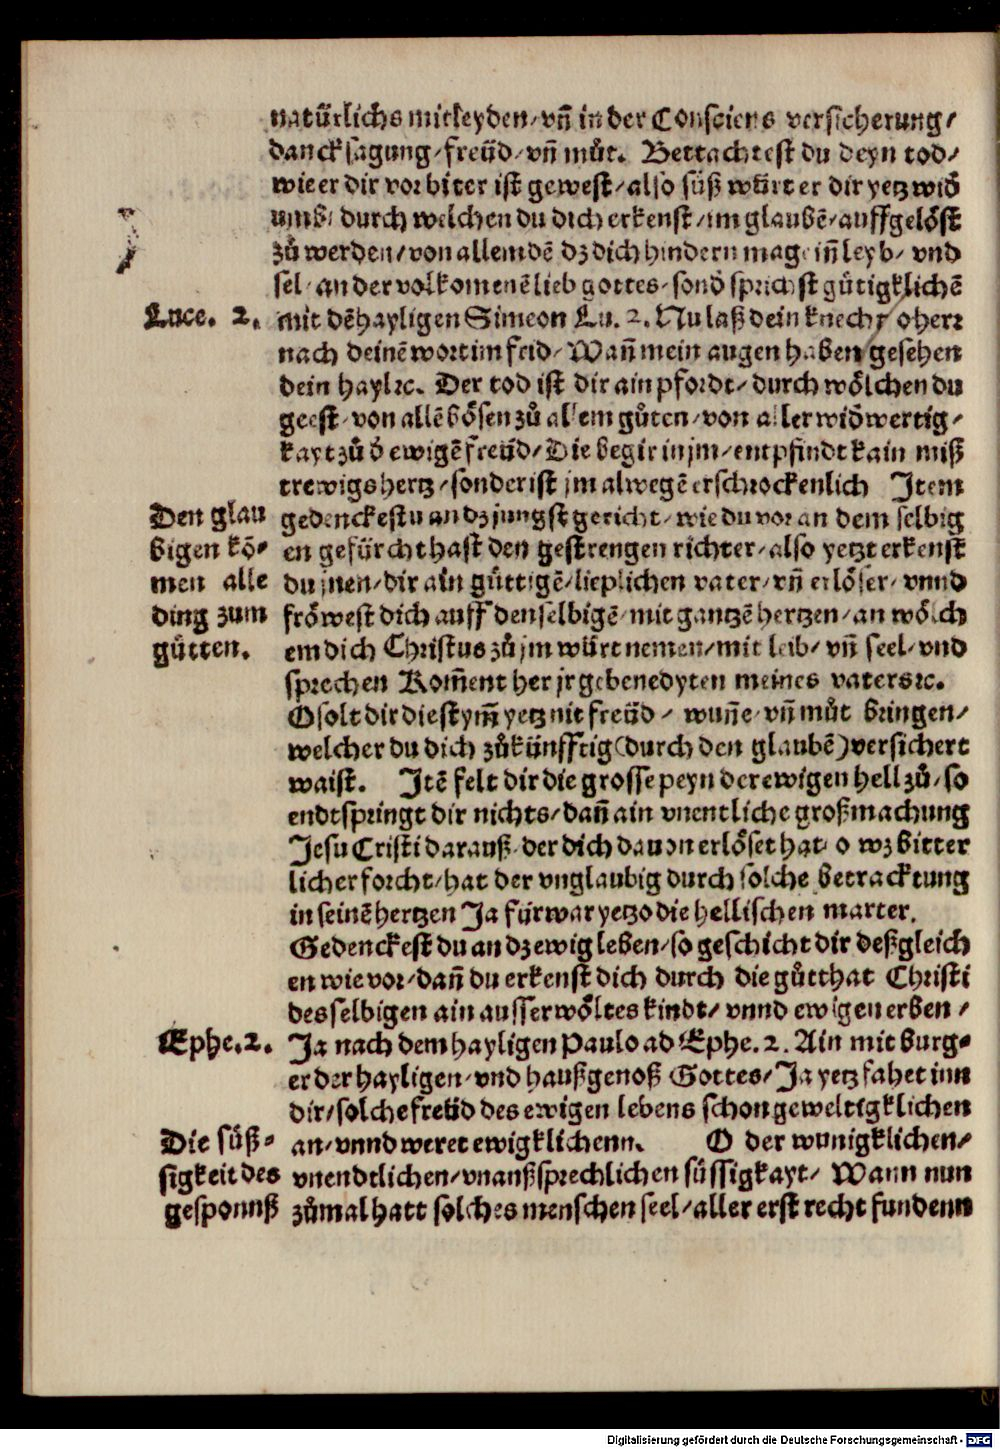 natürlichs mitleyden/ vñ in der Consciens versicherung/
dancksagung/ freüd/ vñ můt. Bettachtest du deyn tod/
wie er dir vor biter ist gewest/ also süß würt er dir yetz wið
umb/ durch welchen du dich erkenst/ im glaubē/ auffgelöst
zů werden/ von allem dē dz dich hindern mag inñ leyb/ vnd
sel/ an der volkomenē lieb gottes/ sonð sprichst gütigklichē
Luce. 2. mit dē hayligen Simeon Lu. 2. Nu laß dein knecht o herr
nach deinē wort im frid/ Wañ mein augen haben gesehen
dein haylꝛc. Der tod ist dir ain pfordt/ durch wölchen du
geest/ von allē bösen zů allem gůten/ von aller wiðwertig/
kayt zů ð ewigē freüd/ Die begir in jm/ entpfindt kain miß
trewigs hertz/ sonder ist jm alwegē erschrockenlich Item
Den glau gedenckestu an dz jungst gericht/ wie du vor an dem selbig
bigen kö- en gefürcht hast den gestrengen richter/ also yetzt erkenst
men alle du jnen/ dir ain güttigē/ lieplichen vater/ vñ erlöser/ vnnd
ding zum fröwest dich auff denselbigē/ mit gantzē hertzen/ an wölch
gütten. em dich Christus zů jm würt nemen/ mit leib/ vñ seel/ vnd
sprechen Kom̃ent her jr gebenedyten meines vatersꝛc.
O solt dir die stym̃ yetz nit freüd/ wuñe/ vñ můt bringen/
welcher du dich zůkünfftig (durch den glaubē) versichert
waist. Itē felt dir die grosse peyn der ewigen hell zů/ so
endtspringt dir nichts/ dañ ain vnentliche großmachung
Jesu Cristi darauß/ der dich dauon erlöset hat/ o wz bitter
licher forcht/ hat der vnglaubig durch solche betracktung
in seinē hertzen Ja fürwar yetzo die hellischen marter.
Gedenckest du an dz ewig leben/ so geschicht dir deßgleich
en wie vor/ dañ du erkenst dich durch die gůtthat Christi
desselbigen ain ausserwöltes kindt/ vnnd ewigen erben/
Ephe. 2. Ja nach dem hayligen Paulo ad Ephe. 2. Ain mit burg-
er der hayligen/ vnd haußgenoß Gottes/ Ja yetz fahet inn
dir/ solche freüd des ewigen lebens schon geweltigklichen
Die süß- an/ vnnd weret ewigklichenn. O der wunigklichen/
sigkeit des vnendtlichen/ vnaußsprechlichen süssigkayt/ Wann nun
gesponnß zůmal hatt solches menschen seel/ aller erst recht fundenn
Digitalisierung gefördert durch die Deutsche Forschungsgemeinschaft - DFG